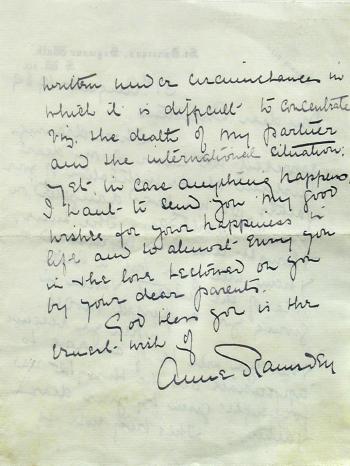 written under circumstances in
which it is difficult to concentrate
viz. the death of my partner
and the international situation.
Yet in case anything happens
I want to send you my good
wishes for your happiness in
life and to almost envy you
in the love bestowed on you
by your dear parents.
God bless you is the
earnest wish of
Anne Ramsden